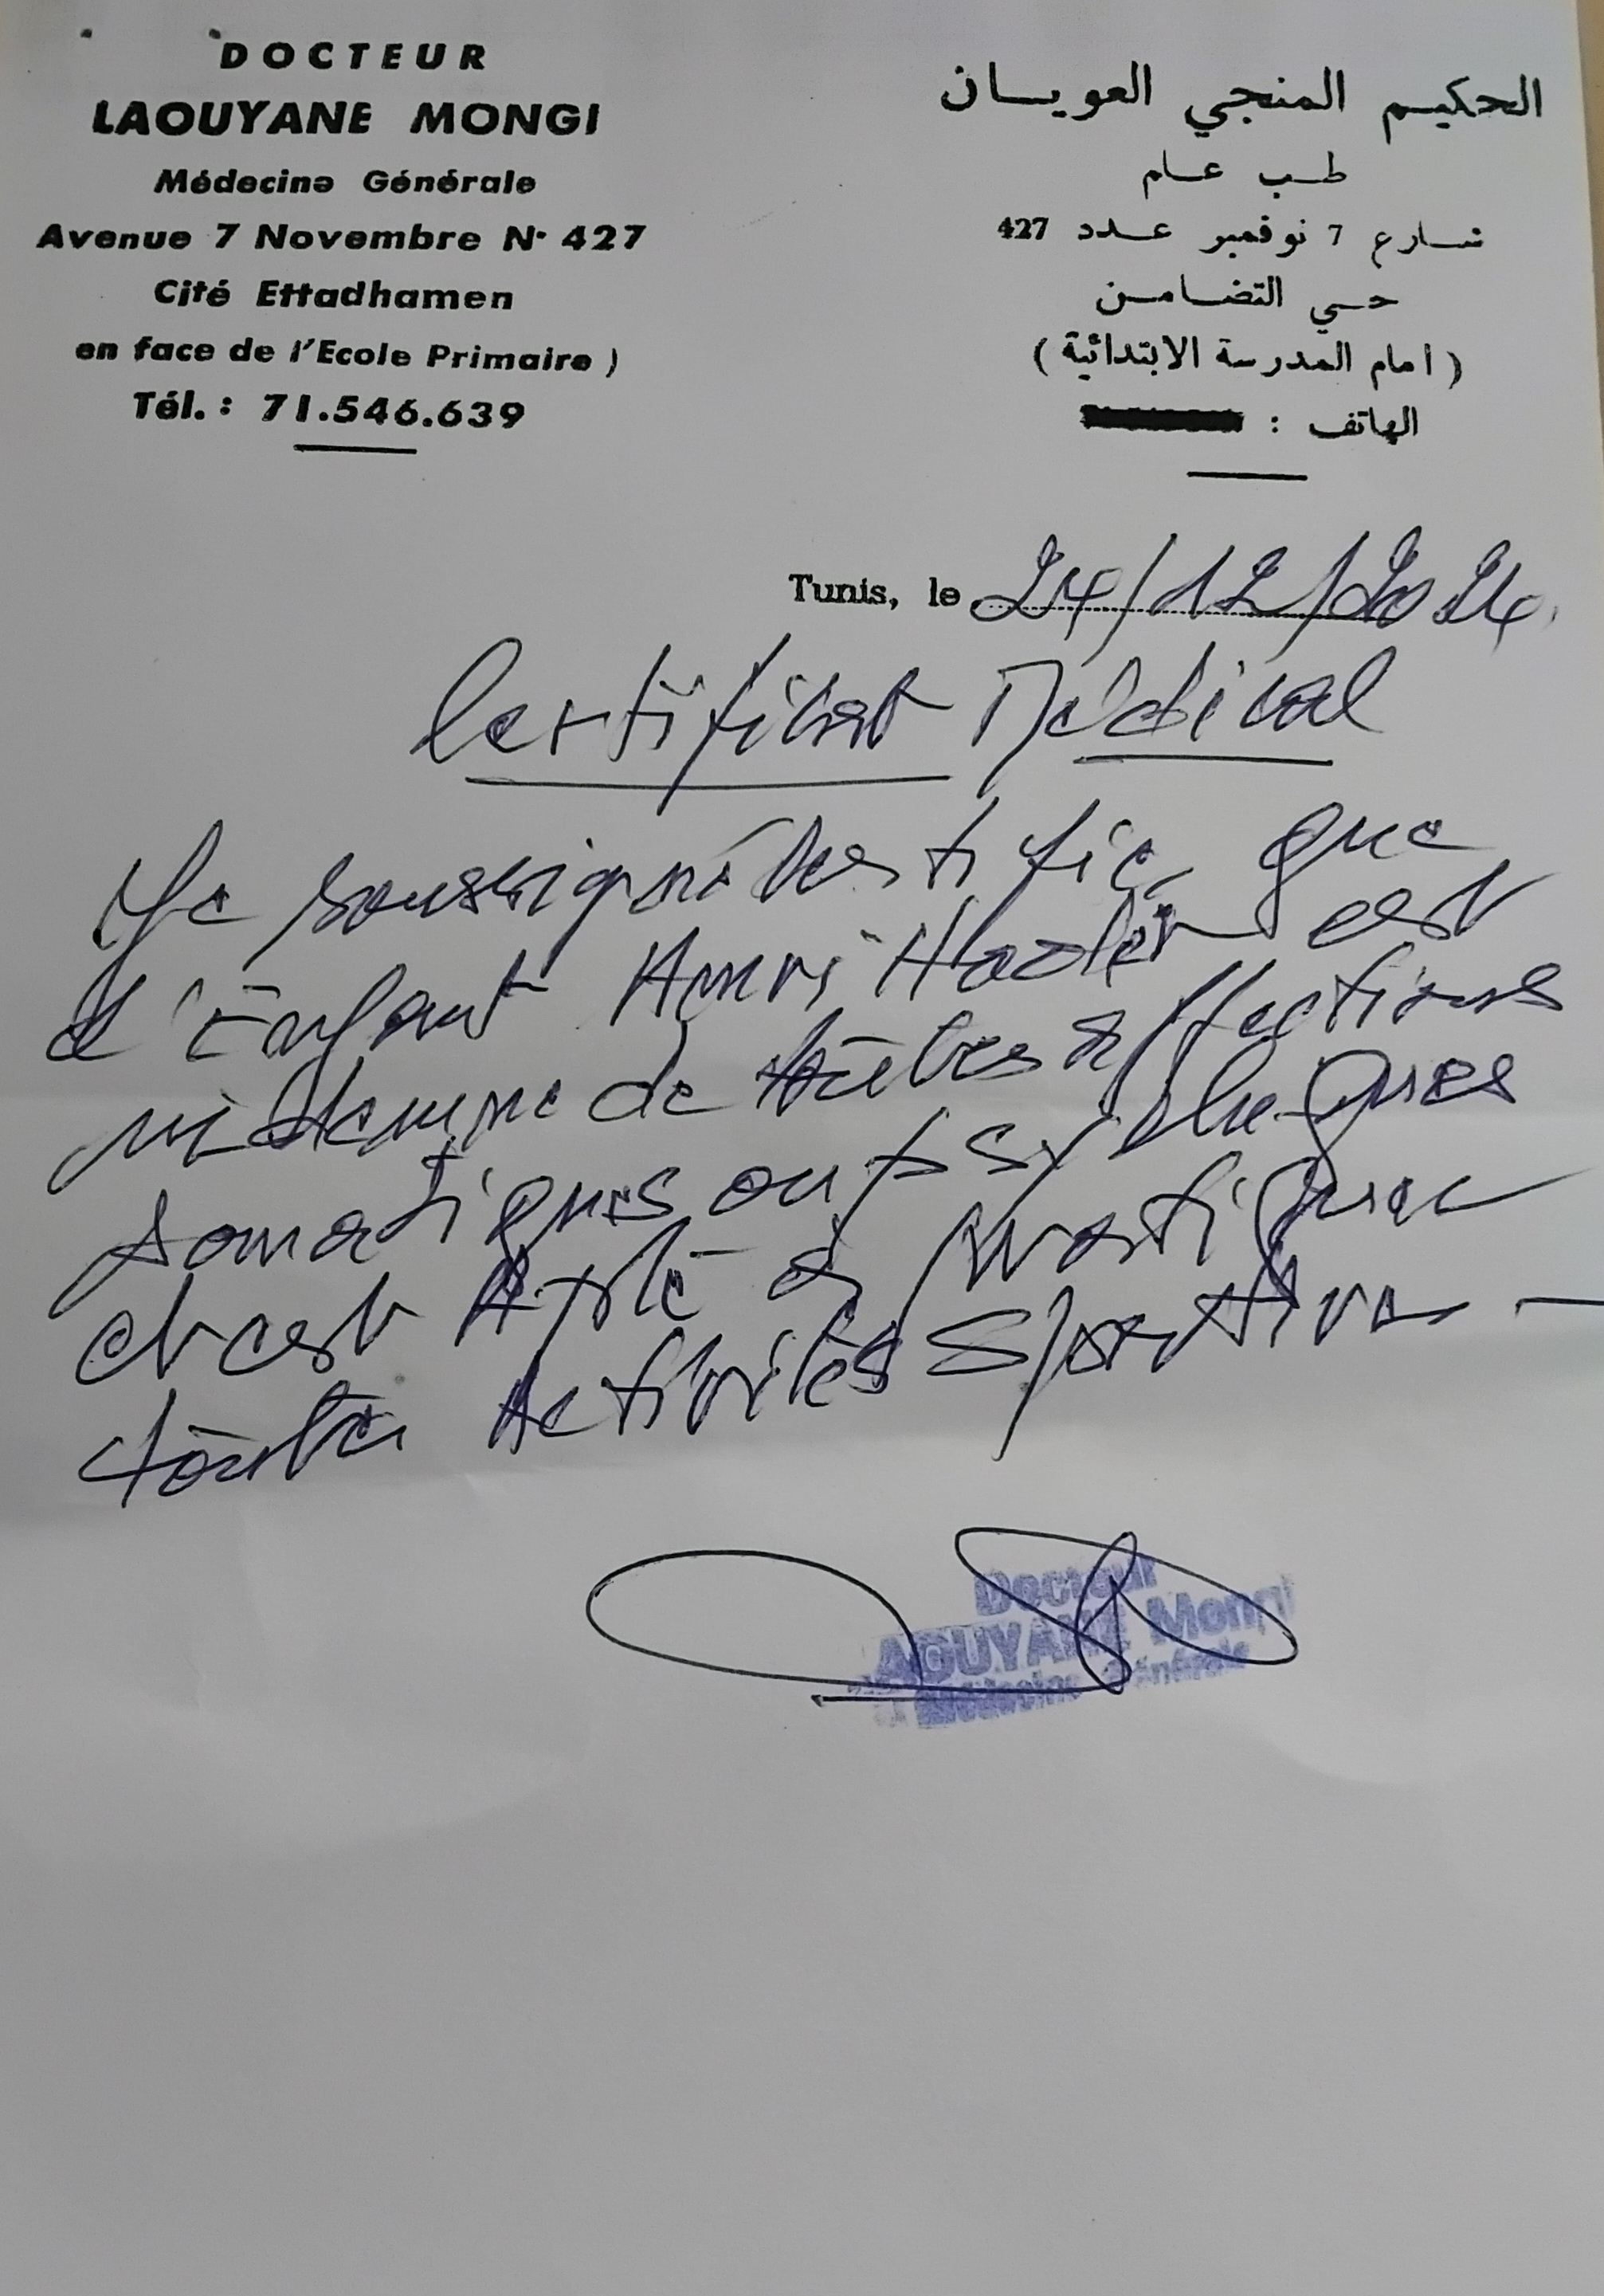 DOCTEUR
LAOUYANE MONGI
Médecine Générale
Avenue 7 Novembre N° 427
Cité Ettadhamen
en face de l'Ecole Primaire )
Tél. : 71.546.639
الحكيم المنجي العويان
طب عام
شارع 7 نوفمبر عدد 427
حي التضامن
( امام المدرسة الابتدائية )
الهاتف :
Tunis, le 24/12/2024
Certificat Médical
Je soussigné Certifie que
l'Enfant Amri est
indemne de toutes affections
somatiques ou psychiques
et est Apte à pratiquer
toute Activités Sportives
Docteur
LAOUYANE Mongi
Médecine Générale